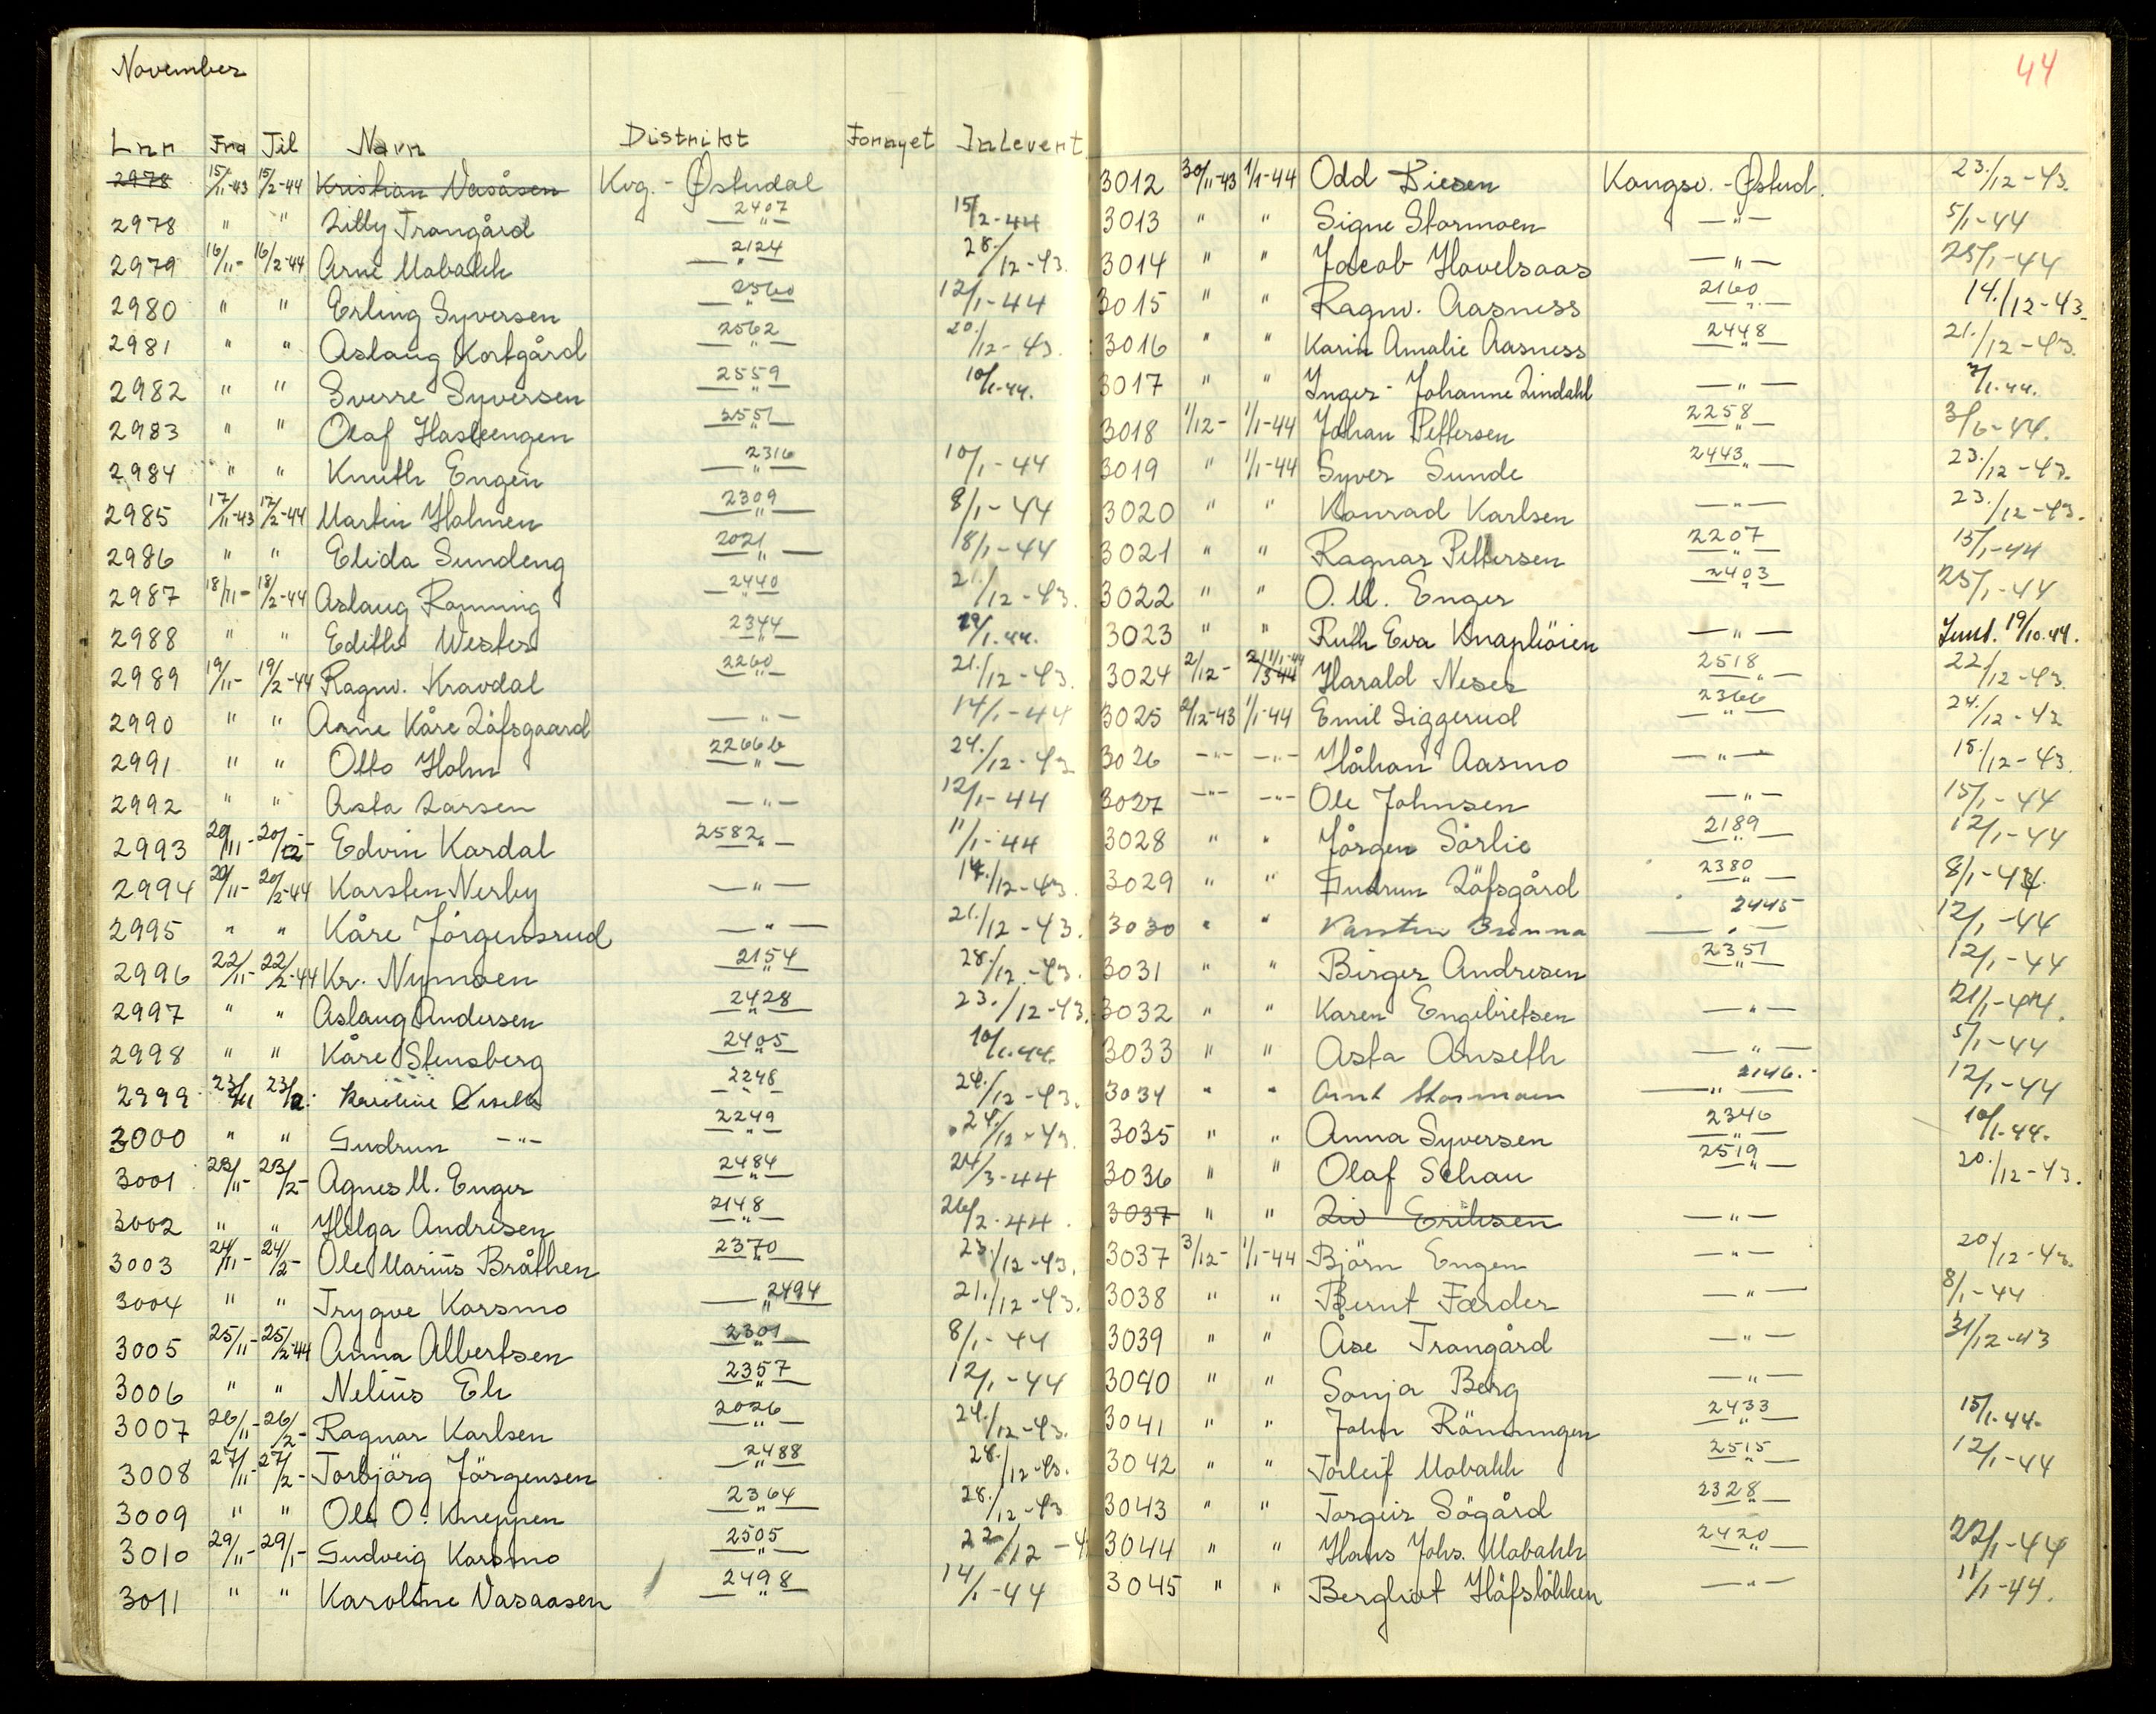 November
Lnr Fra Til Navn Distrikt Fornyet Inlevert
2978 15/11-43 15/2-44 Kristian Vasåsen Kvg. - Østudal
2978 " " Lilly Trangård 2407 —"— 15/2-44
2979 16/11- 16/2-44 Arne Mobakk 2124 —"— 28./12-43.
2980 " " Erling Syversen 2560 —"— 12/1-44
2981 " " Aslaug Kortgård 2562 —"— 20./12-43.
2982 " " Sverre Syversen 2559 —"— 10/1-44.
2983 " " Olaf Hasleengen 2551 —"—
2984 " " Knuth Engen 2316 —"— 10/1-44
2985 17/11-43 17/2-44 Martin Holmen 2309 —"— 8/1-44
2986 " " Elida Sundeng 2021 —"— 18/1-44
2987 18/11- 18/2-44 Aslaug Ronning 2440 —"— 21/12-43.
2988 " " Edith Wester 2344 —"— /1.44.
2989 19/11- 19/2-44 Ragnv. Kravdal 2260 —"— 21./12-43.
2990 " " Arne Kåre Löfsgaard —"— 14/1-44
2991 " " Otto Holm 2266b —"— 24./12-43
2992 " " Asta Larsen —"— 12/1-44
2993 20/11- 20/12- Edvin Kardal 2582 —"— 11/1-44
2994 20/11- 20/2-44 Karsten Nerby —"— 14./12-43.
2995 " " Kåre Jörgensrud —"— 21./12-43.
2996 22/11- 22/2-44 Kr. Nymoen 2154 —"— 28./12-43.
2997 " " Aslaug Andersen 2428 —"— 23./12-43.
2998 " " Kåre Stensberg 2405 —"— 10/1-44.
2999 23/11 23/2. Karoline 2248 —"— 24./12-43.
3000 " " Gudrun —"— 2249 —"— 24./12-43.
3001 23/11- 23/2- Agnes M. Enger 2484 —"— 24/3-44
3002 " " Helga Andresen 2148 —"— 26/2-44.
3003 24/11- 24/2- Ole Marius Bråthen 2370 —"— 23/12-43.
3004 " " Trygve Karsmo 2494 —"— 21./12-43.
3005 25/11- 25/2-44 Anna Albertsen 2301 —"— 8/1-44
3006 " " Nelius Ek 2357 —"— 12/1-44
3007 26/11- 26/2- Ragnar Karlsen 2026 —"— 24./12-43.
3008 27/11- 27/2- Torbjörg Jörgensen 2488 —"— 28./12-43.
3009 " " Ole O. Kneppen 2364 —"— 28./12-43
3010 29/11- 29/1- Gudveig Karsmo 2505 —"— 22/12-4
3011 " " Karoline Vasaasen 2498 —"— 14/1-44
44
3012 30/11-43 1/1-44 Odd Diesen Kongsv. - Østud. 23./12-43.
3013 " " Signe Stormoen —"— 5/1-44
3014 " " Jacob Hovelsaas —"— 25/1-44
3015 " " Ragnv. Aasness 2160 —"— 14./12-43.
3016 " " Karin Amalie Aasness 2448 —"— 21./12-43.
3017 " " Inger-Johanne Lindahl —"— 7/1.44.
3018 1/12- 1/1-44 Johan Pettersen 2258 —"— 3/6-44.
3019 " 1/1-44 Syver Sunde 2443 —"— 23./12-43.
3020 " " Konrad Karlsen —"— 23./12-43.
3021 " " Ragnar Pettersen 2207 —"— 15/1-44
3022 " " O. M. Enger 2403 —"— 25/1-44
3023 " " Ruth Eva Knapliöien —"— 19/10.44.
3024 2/12- 2/3-44 1/1-44 Harald Neser 2518 —"— 22/12-43.
3025 2/12-43 1/1-44 Emil Siggerud 2366 —"— 24./12-42
3026 —"— —"— Håkon Aasmo —"— 15./12-43.
3027 —"— —"— Ole Johnsen —"— 15/1-44
3028 " " Jörgen Sörlie 2189 —"— 12/1-44
3029 " " Gudrun Löfsgård 2380 —"— 8/1-44.
3030 " " Karsten Brenna 2445 —"— 12/1-44
3031 " " Birger Andresen 2351 —"— 12/1-44
3032 " " Karen Engebretsen —"— 21/1-44.
3033 " " Asta Anseth —"— 5/1-44
3034 " " Arnt Stormoen 2146. —"— 12/1-44
3035 " " Anna Syversen 2346 —"— 10/1-44.
3036 " " Olaf Schau 2519 —"— 20./12-43.
3037 " " Liv Eriksen —"—
3037 3/12- 1/1-44 Björn Engen —"— 20/12-43.
3038 " " Bernt Færder —"— 8/1-44
3039 " " Åse Trangård —"— 31/12-43
3040 " " Sonja Berg —"—
3041 " " John Rönningen 2433 —"— 15/1-44.
3042 " " Torleif Mobakk 2515 —"— 12/1-44
3043 " " Torgeir Sögård 2328 —"—
3044 " " Hans Johs. Mobakk 2420 —"— 22/1-44
3045 " " Bergliot Höfslökken —"— 11/1-44.